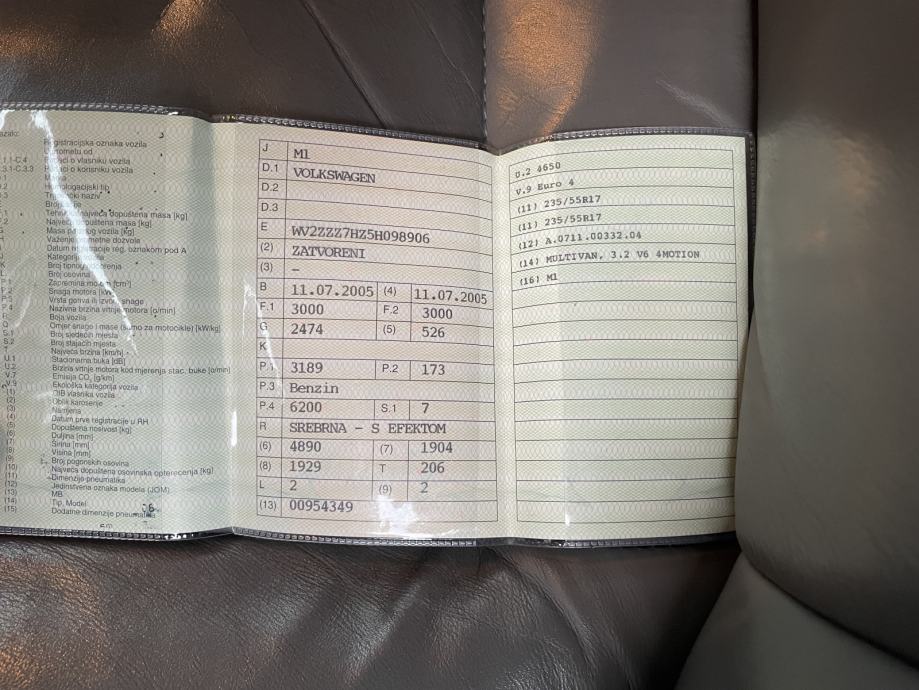 Registracijska oznaka vozila
.1.1-C.4 o vlasniku vozila
.3.1-C.3.3 o korisniku vozila
Tehn. najveća dopuštena masa [kg]
dopuštena masa [kg]
Masa vozila [kg]
Važenje dozvole
Datum reg. oznakom pod A
Broj osovina
Snaga motora
Vrsta goriva ili izvor snage
Nazivna brzina vrtnje motora [o/min]
Boja vozila
Omjer snage i mase (samo za motocikle) [kW/kg]
Broj sjedećih mjesta
S.2 Broj stajaćih mjesta
T Najveća brzina [km/h]
U.1 Stacionarna buka [dB]
U.2 Brzina vrtnje motora kod mjerenja stac. buke [o/min]
V.7 Emisija CO2 [g/km]
V.9 Ekološka kategorija vozila
(1) OIB vlasnika vozila
(2) Oblik karoserije
(3) Namjena
(4) Datum prve registracije u RH
(5) Dopuštena nosivost [kg]
(6) Duljina [mm]
(7) Širina [mm]
(8) Visina [mm]
(9) Broj pogonskih osovina
(10) Najveća dopuštena osovinska opterećenja [kg]
(11) Dimenzije pneumatika
(12) Jedinstvena oznaka modela (JOM)
(13) MB
(14) Tip, Model
(15) Dodatne dimenzije pneumatika
J M1
D.1 VOLKSWAGEN
D.2
D.3
E WV2ZZZ7HZ5H098906
(2) ZATVORENI
(3) –
B 11.07.2005 (4) 11.07.2005
F.1 3000 F.2 3000
G 2474 (5) 526
K
P.1 3189 P.2 173
P.3 Benzin
P.4 6200 S.1 7
R SREBRNA - S EFEKTOM
(6) 4890 (7) 1904
(8) 1929 T 206
L 2 (9) 2
(13) 00954349
U.2 4650
V.9 Euro 4
(11) 235/55R17
(11) 235/55R17
(12) A.0711.00332.04
(14) MULTIVAN, 3.2 V6 4MOTION
(16) M1